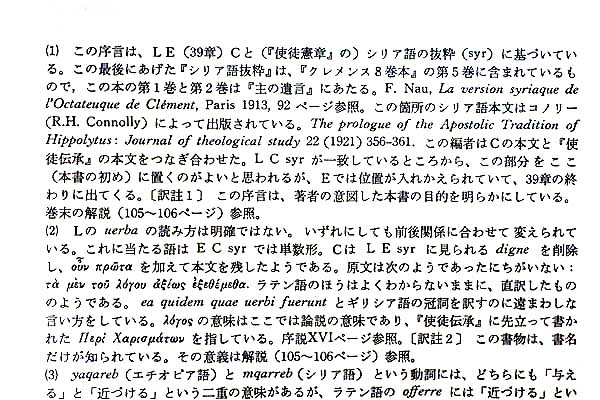 (1) この序言は、LE（39章）Cと（『使徒憲章』の）シリア語の抜粋（syr）に基づいてい
る。この最後にあげた『シリア語抜粋』は、『クレメンス8巻本』の第5巻に含まれているも
ので，この本の第1巻と第2巻は『主の遺言』にあたる。F. Nau, La version syriaque de
l'Octateuque de Clément, Paris 1913, 92 ページ参照。この箇所のシリア語本文はコノリー
(R.H. Connolly) によって出版されている。The prologue of the Apostolic Tradition of
Hippolytus: Journal of theological study 22 (1921) 356-361. この編者はCの本文と『使
徒伝承』の本文をつなぎ合わせた。LC syr が一致しているところから、この部分をここ
（本書の初め）に置くのがよいと思われるが、Eでは位置が入れかえられていて、39章の終
わりに出てくる。〔訳註1〕 この序言は、著者の意図した本書の目的を明らかにしている。
巻末の解説（105〜106ページ）参照。
(2) Lの uerba の読み方は明確ではない。いずれにしても前後関係に合わせて変えられて
いる。これに当たる語は EC syr では単数形。Cは LE syr に見られる digne を削除
し、οὖν πρῶτα を加えて本文を残したようである。原文は次のようであったにちがいない：
τὰ μὲν τοῦ λόγου ἀξίως ἐξεθέμεθα. ラテン語のほうはよくわからないままに、直訳したもの
のようである。 ea quidem quae uerbi fuerunt とギリシア語の冠詞を訳すのに遠まわしな
言い方をしている。λόγος の意味はここでは論説の意味であり、『使徒伝承』に先立って書か
れた Περὶ Χαρισμάτων を指している。序説XVIページ参照。〔訳註2〕 この書物は、書名
だけが知られている。その意義は解説（105〜106ページ）参照。
(3) yaqareb（エチオピア語）と mqarreb（シリア語）という動詞には、どちらにも「与え
る」と「近づける」という二重の意味があるが、ラテン語の offerre には「近づける」とい